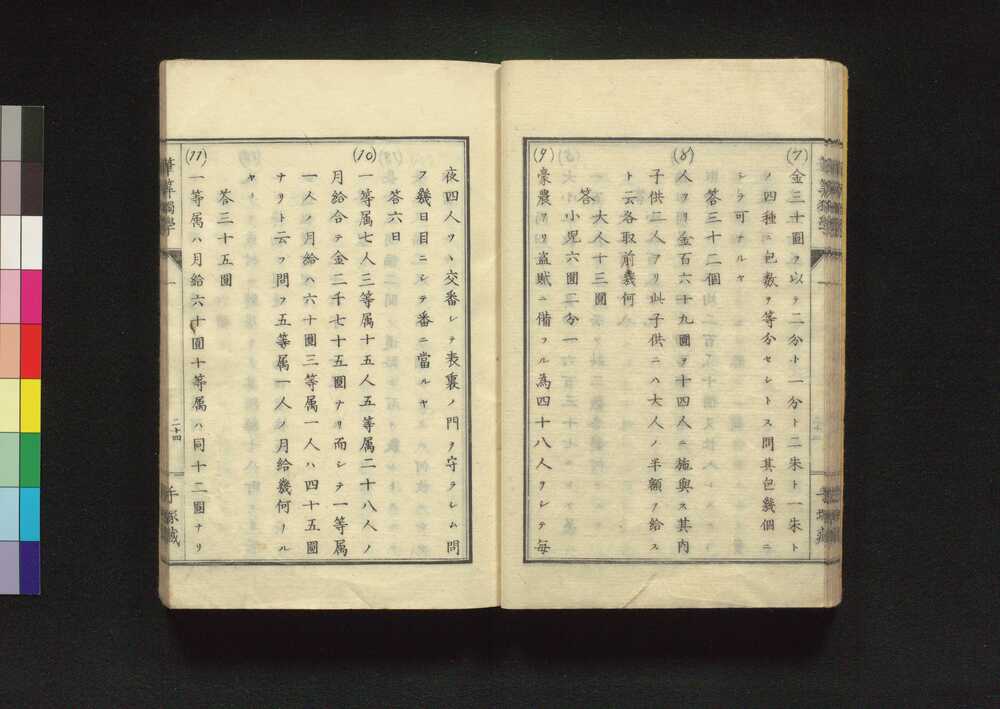 (7)
金三十圓ヲ以テ二分ト一分ト二朱ト一朱ト
ノ四種ニ包数ヲ等分セントス問其包幾個ニ
シテ可ナルヤ
答三十二個
(8)
人アリ金百六十九圓ヲ十四人ニ施與ス其内
子供二人アリ此子供ニハ大人ノ半額ヲ給ス
ト云各取前幾何
大人十三圓
答
小児六圓二分
(9)
豪農アリ盗賊ニ備フル為四十八人ヲシテ毎
夜四人ツヽ交番シテ表裏ノ門ヲ守ラシム問
フ幾日目ニシテ番ニ當ルヤ
答六日
(10)
一等属七人三等属十五人五等属二十八人ノ
月給合テ金二千七十五圓ナリ而シテ一等属
一人ノ月給ハ六十圓三等属一人ハ四十五圓
ナリト云フ問フ五等属一人ノ月給幾何ナル
ヤ
答三十五圓
(11)
一等属ハ月給六十圓十等属ハ同十二圓ナリ
二十四